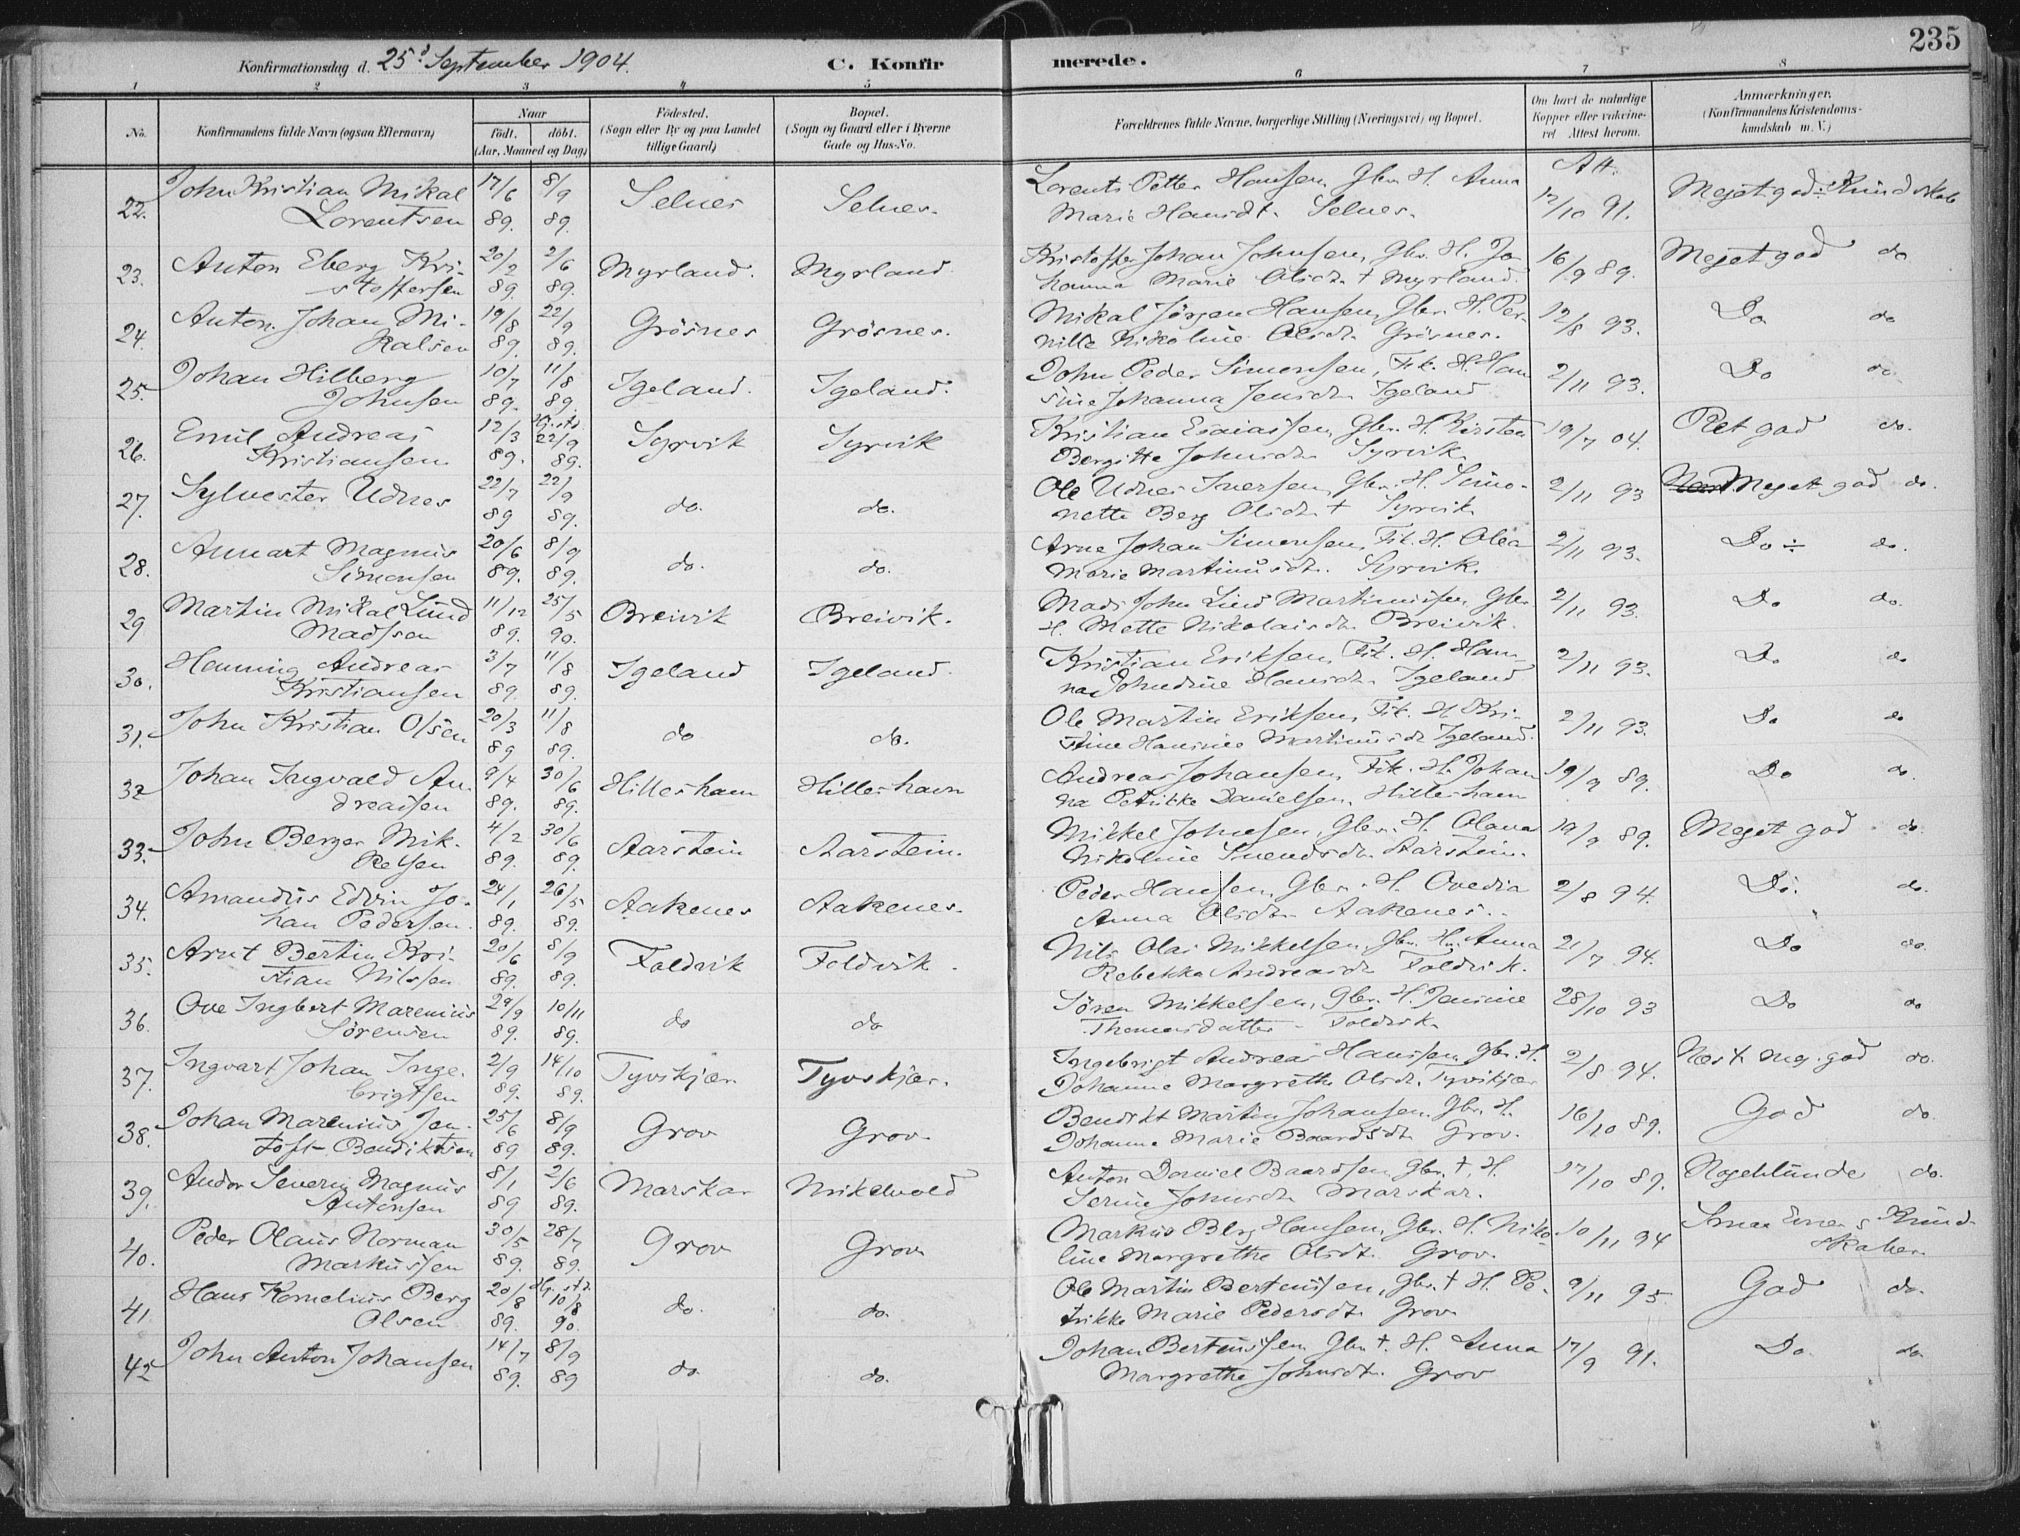 235
Konfirmationsdag d. 25d September 1904.
C. Konfirmerede.
1 2 3 4 5 6 7 8
No.
Konfirmandens fulde Navn (ogsaa Efternavn)
Naar
födt. döbt.
(Aar, Maaned og Dag)
Födested.
(Sogn eller By og paa Landet
tillige Gaard)
Bopæl.
(Sogn og Gaard eller i Byerne
Gade og Hus-No.
Forældrenes fulde Navne, borgerlige Stilling (Næringsvei) og Bopæl.
Om havt de naturlige
Kopper eller vakcine-
ret Attest herom.
Anmærkninger.
(Konfirmandens Kristendoms-
kundskab m. V.)
Att.
22. John Kristian Mikal 17/6 8/9 Selnes Selnes. Lorents Petter Hansen, Gbr. H. Anna 12/10 91. Meget god Kundskab
Lorentsen 89. 89. Marie Hansdt. Selnes.
23. Anton Eberg Kri- 20/2 2/6 Myrland. Myrland Kristoffer Johan Johnsen, Gbr. H. Jo- 16/9 89. Meget god do
stoffersen 89. 89. hanna Marie Olsdt. + Myrland.
24. Anton Johan Mi- 19/8 22/9 Grösnes Grösnes. Mikal Jørgen Hansen, Gbr. H. Per- 12/8 93. Do do
kalsen 89. 89. nille Nikoline Olsdt. Grösnes.
25. Johan Hilberg 10/7 11/8 Igeland. Igeland. John Peder Simonsen, Fik. H. Han 2/11 93. Do do
Johnsen 89. 89. sine Johanna Jensdt. Igeland
26. Emil Andreas 12/3 Hj. st. d. 22/9 Syrvik Syrvik Kristian Esaiassen, Gbr. H. Kirsten 19/7 04. Ret god do.
Kristiansen 89. 89. Bergitte Johnsdt. Syrvik
27. Sylvester Udnes 22/7 22/9 do. do. Ole Udnes Iversen, Gbr. H. Simo- 2/11 93 Meget god do.
89 89. nette Berg Olsdt. + Syrvik
28. Annart Magnus 20/6 8/9 do. do. Arne Johan Simonsen, Fik. H. Olea 2/11 93. Do ÷ do.
Simonsen 89. 89. Marie Martinusdt. Syrvik.
29 Martin Mikal Lund 11/12 25/5 Breivik Breivik. Mads John Lund Martinussen, Gbr. 2/11 93. Do do.
Madsen 89. 90. H. Mette Nikolaisdt. Breivik.
30. Henning Andreas 3/7 11/8 Igeland Igeland. Kristian Eriksen, Fik. H. Han- 2/11 93. Do do
Kristiansen 89. 89. na Johndine Hansdt. Igeland
31. John Kristian Olsen 20/3 11/8 do do. Ole Martin Eriksen, Fik. H. Kri- 2/11 93. Do do
89 89. stine Hansine Martinusdt. Igeland.
32 Johan Ingvald An- 9/4 30/6 Hilleshamn Hilleshavn Andreas Johansen, Fik. H. Johan 19/9 89. Do do.
dreassen 89. 89. na Petrikke Danielsen. Hilleshamn
33. John Berger Mik- 4/2 30/6 Aarstein Aarstein. Mikkel Johnsen, Gbr. H. Olava 19/9 89. Meget god do.
kelsen 89. 89. Nikoline Svendsdt. Aarstein.
34. Amandus Edvin Jo- 24/1 26/5 Aakenes Aakenes. Peder Hansen, Gbr. H. Ovedia 2/8 94. Do. do.
han Pedersen. 89. 89. Anna Olsdt. Aakenes.
35. Arnt Bertin Kri- 20/6 8/9 Foldvik Foldvik. Nils Olai Mikkelsen, Gbr. H. Anna 21/7 94. Do do.
stian Nilssen 89. 89. Rebekka Andreasdt. Foldvik.
36. Ove Ingbert Marenius 29/9 10/11 do do Søren Mikkelsen, Gbr. H. Jensine 28/10 93 Do do
Sørensen 89. 89. Thomasdatter - Foldvik
37. Ingvart Johan Inge- 2/9 14/10 Tyvskjær Tyvskjær. Ingebrigt Andreas Hanssen, Gbr. H. 2/8 94. Næst meg. god do.
brigtsen 89. 89. Johanna Margrethe Olsdt. Tyvskjær
38. Johan Marenius Jen- 25/6 8/9 Grov Grov. Bendikt Martin Johansen. Gbr. H. 16/10 89. God do.
toft Bendiktsen 89 89. Johanna Marie Baardsdt. Grov.
39. Andor Severin Magnus 8/1 2/6 Marskar Mikelvold Anton Daniel Baardsen, Gbr. +, H. 17/10 89. Nogenlunde do.
Antonsen 89 89. Serine Johnsdt. Marskar.
40. Peder Olaus Norman 30/5 28/7 Grov Grov Markus Berg Hansen, Gbr. H. Niko- 10/11 94 Smaa Evner & Kund-
Markussen 89. 89. line Margrethe Olsdt. Grov. skaber
41. Hans Kornelius Berg 20/8 Hj. st. d. 10/8 do. do. Ole Martin Berteussen, Gbr. + H. Pe- 9/11 95. God do.
Olsen 89. 90. trikke Marie Pedersdt. Grov
42 John Anton Johansen 14/7 8/9 do do. Johan Berteussen Gbr. +. H. Anna 17/9 91. Do. do
89. 89 Margrethe Johnsdt. Grov